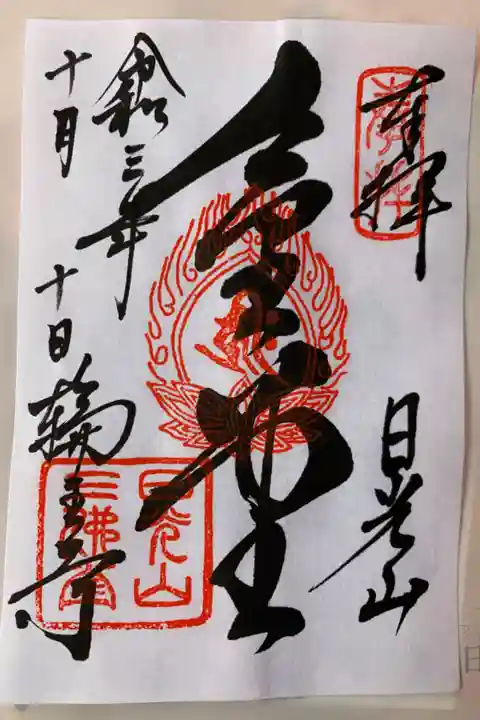 奉拝
日光山
金堂
令和三年
十月十日
輪王寺
日光山
三佛堂